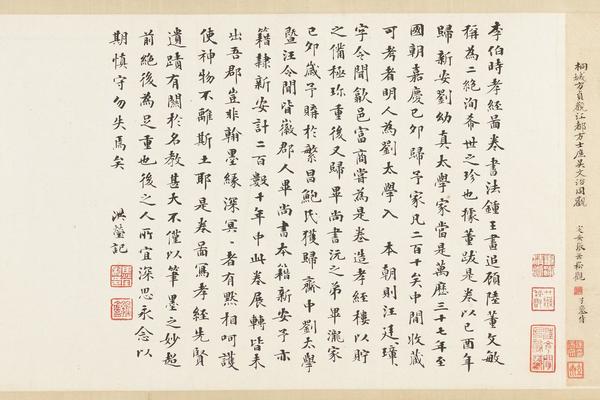 桐城方貞觀江都方士庶吳文治同觀
李伯時孝經啚卷書法鍾王畫追顧陸董文敏
稱為二絶洵希世之珍也據董跋是卷以己酉年
歸新安劉幼真太學家當是萬曆三十七年至
國朝嘉慶己卯歸予家凡二百十矣中間收藏
可考者明人為劉太學入 本朝則汪廷璋
字令聞歙邑富商嘗為是卷造孝經樓以貯
之備極珍重後又歸畢尚書沅之弟畢瀧家
己卯歲予購於繁昌鮑氏獲歸齋中劉太學
暨汪令聞皆徽郡人畢尚書本籍新安予亦
籍隸新安計二百數十年中此卷展轉皆未
出吾郡豈非翰墨緣深冥冥者有默相呵護
使神物不離斯土耶是卷啚寫孝經先賢
遺蹟有關於名教甚大不僅以筆墨之妙超
前絶後為足重也後之人所宜深思永念以
期慎守勿失焉矣 洪瑩記